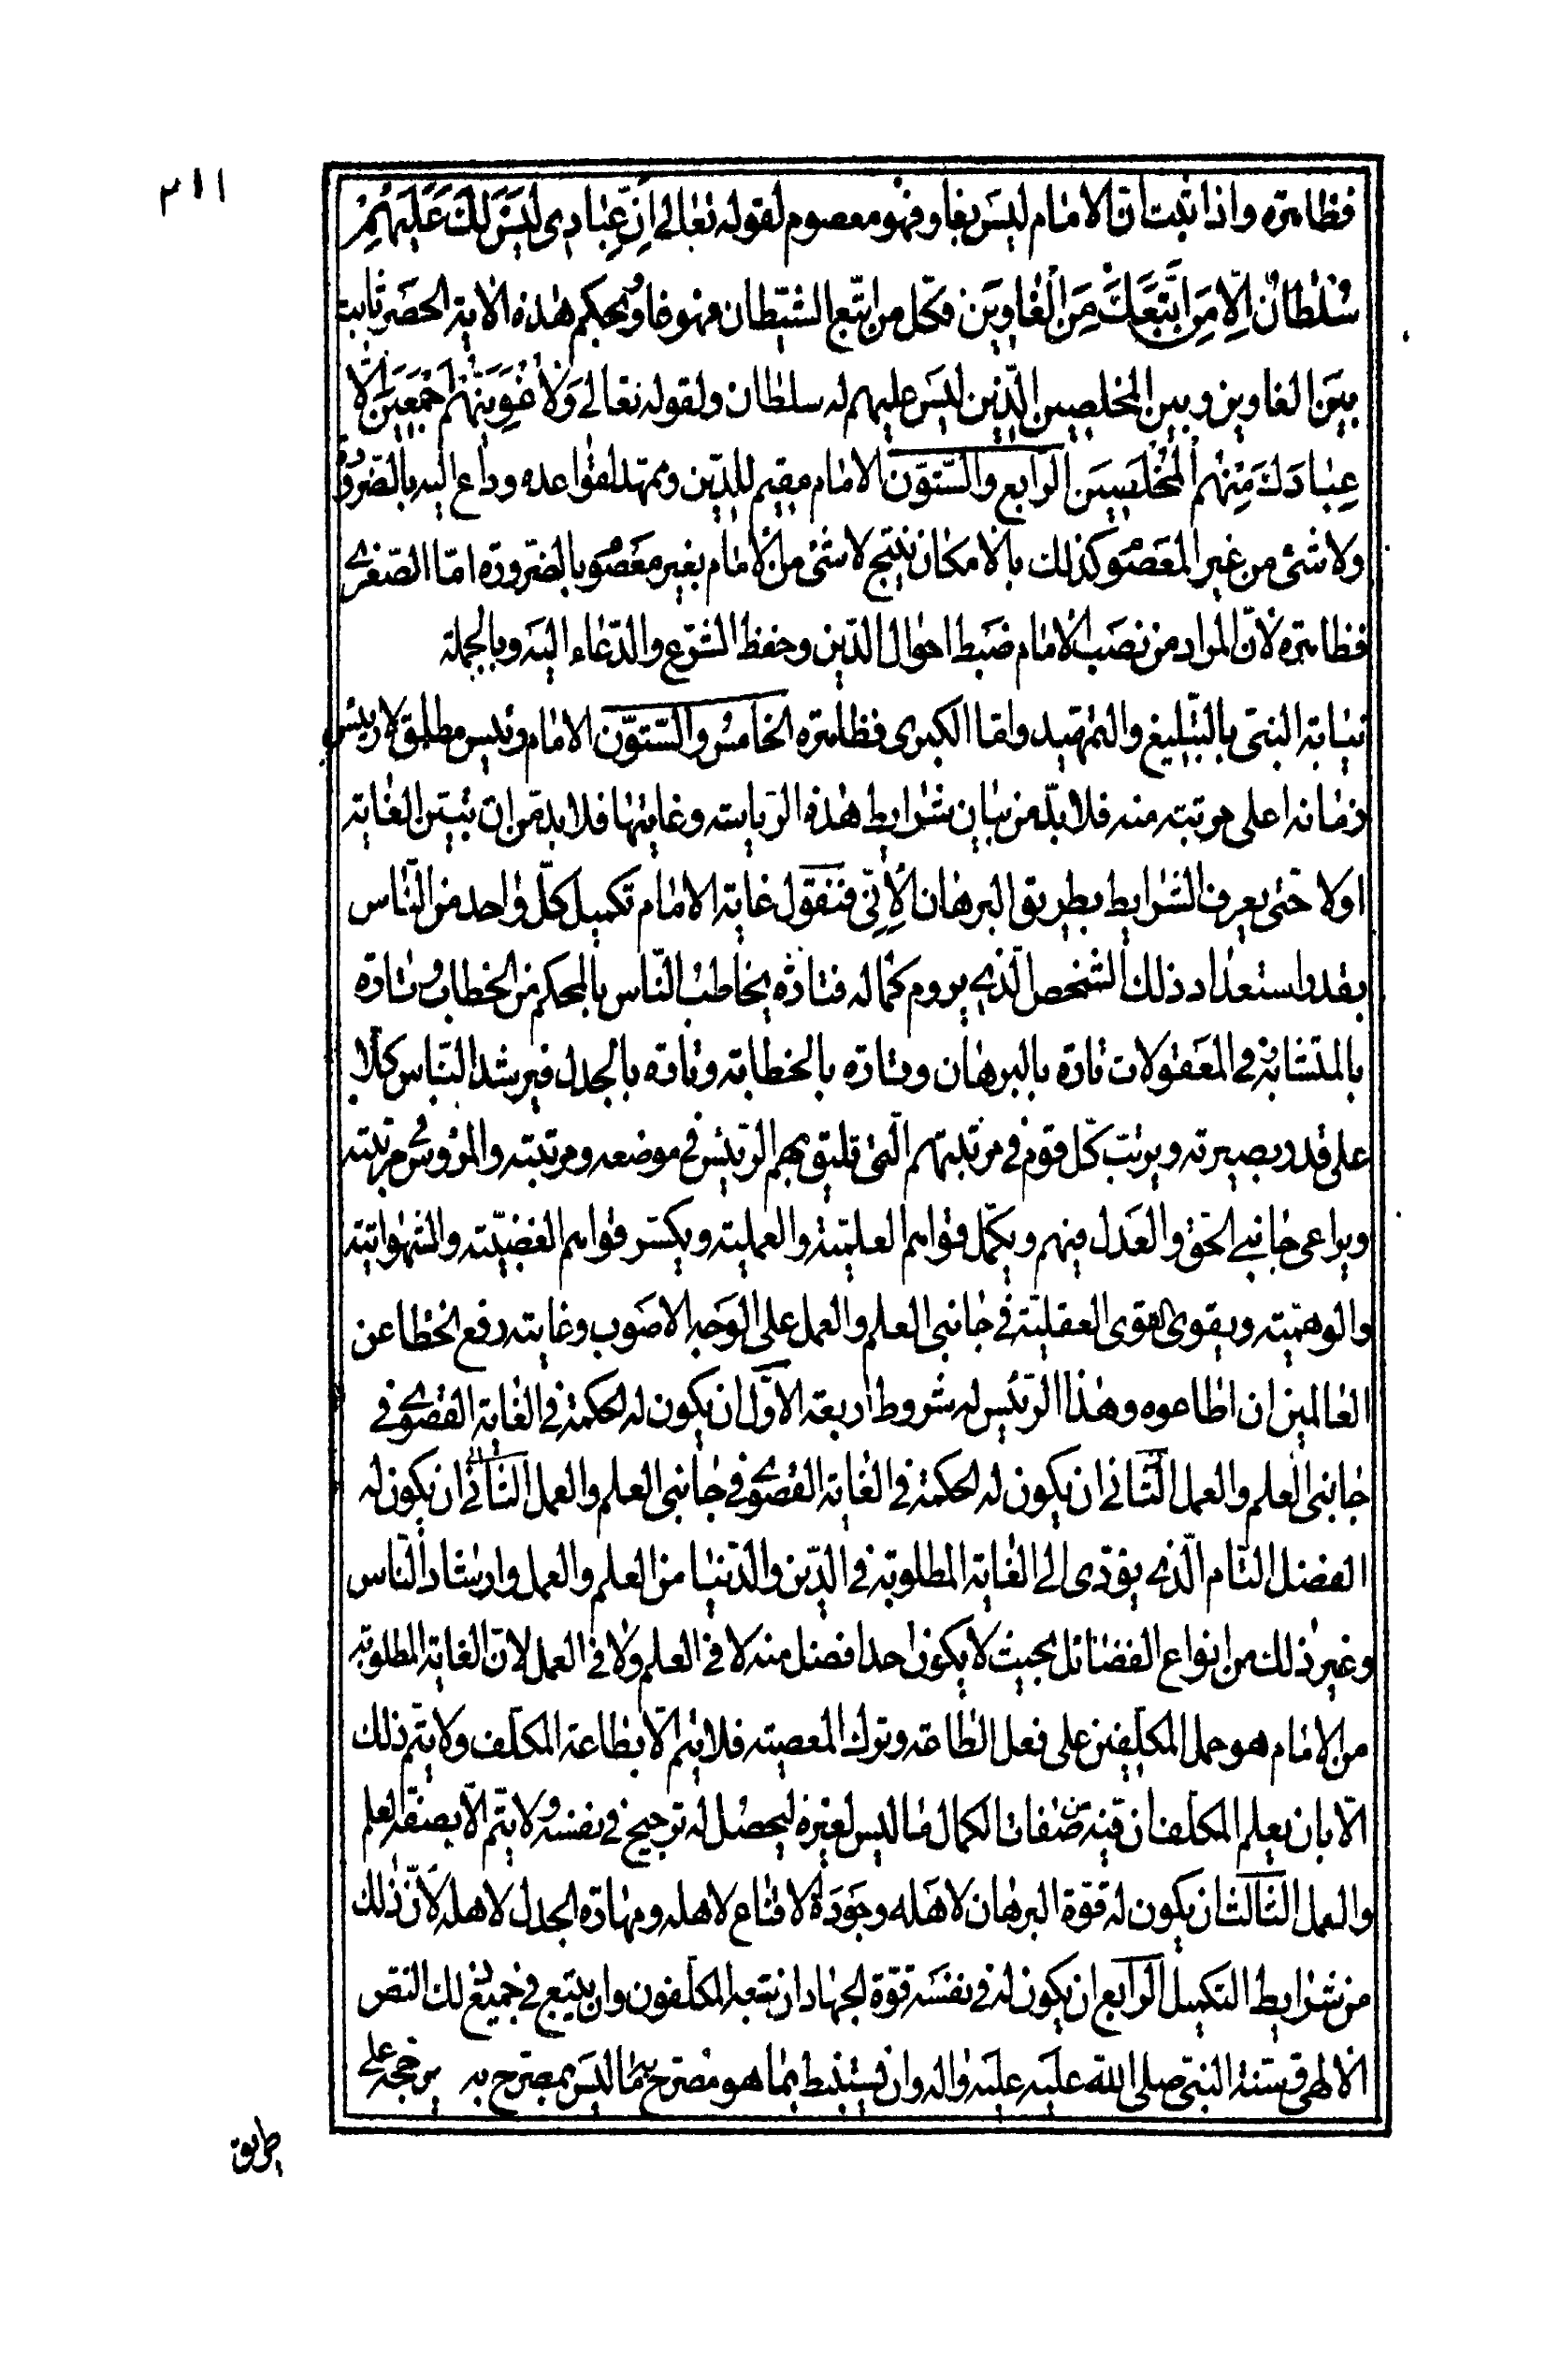 ٣١١
فظاهرة واذا ثبت ان الامام ليس بغاو فهو معصوم لقوله تعالى اِنَّ عِبادِى لَيْسَ لَكَ عَلَيْهِمْ
سُلْطانٌ اِلّا مَنِ اتَّبَعَكَ مِنَ الْغاوينَ فكل من اتبع الشيطان فهو غاو وبحكم هذه الاية الحصر ثابت
بين الغاوين وبين المخلصين الذين ليس عليهم له سلطان ولقوله تعالى وَلَاُغْوِيَنَّهُمْ اَجْمَعينَ اِلّا
عِبادَكَ مِنْهُمُ الْمُخْلَصينَ الرابع والستون الامام مقيم للدين وممهد لقواعده وداع اليه بالضرورة
ولا شئ من غير المعصوم كذلك بالامكان ينتج لا شئ من الامام بغير معصوم بالضرورة امّا الصغرى
فظاهرة لانّ المراد من نصب الامام ضبط احوال الدين وحفظ الشرع والدعاء اليه وبالجملة
نيابة النبى بالتبليغ والتمهيد وامّا الكبرى فظاهرة الخامس والستون الامام رئيس مطلق لا رئيس
زمانه اعلى مرتبة منه فلا بدّ من بيان شرايط هذه الرياسة وغايتها فلا بد من ان نبين الغاية
اولا حتى يعرف الشرايط بطريق البرهان الاِنّى فنقول غاية الامام تكميل كلّ واحد من الناس
بقدر استعداد ذلك الشخص الذى يروم كماله فتارة يخاطب الناس بالمحكم من الخطاب وتارة
بالمتشابه فى المعقولات تارة بالبرهان وتارة بالخطابة وتارة بالجدل فيرشد الناس كلا
على قدر بصيرته ويرتب كل قوم فى مرتبتهم التى تليق بهم الرئيس فى موضعه ومرتبته والمرؤس فى مرتبته
ويراعى جانبى الحق والعدل فيهم ويكمل قواهم العلمية والعملية ويكسر قواهم الغضبية والشهوانية
والوهمية ويقوى القوى العقلية فى جانبى العلم والعمل على الوجه الاصوب وغايته رفع الخطا عن
العالمين ان اطاعوه وهذا الرئيس له شروط اربعة الاوّل ان يكون له الحكمة فى الغاية القصوى فى
جانبى العلم والعمل الثانى ان يكون له الحكمة فى الغاية القصوى فى جانبى العلم والعمل الثانى ان يكون له
الفضل التام الذى يؤدى الى الغاية المطلوبة فى الدين والدنيا من العلم والعمل وارشاد الناس
وغير ذلك من انواع الفضائل بحيث لا يكون احد افضل منه لا فى العلم ولا فى العمل لان الغاية المطلوبة
من الامام هو حمل المكلفين على فعل الطاعة وترك المعصية فلا يتم الّا بطاعة المكلف ولا يتم ذلك
الّا بان يعلم المكلف ان فيه من صفات الكمال ما ليس لغيره ليحصل له ترجيح فى نفسه ولا يتم الّا بصفة العلم
والعمل الثالث ان يكون له قوة البرهان لاهله وجودة الاقناع لاهله ومهارة الجدل لاهله لانّ ذلك
من شرايط التكميل الرابع ان يكون له فى نفسه قوّة الجهاد ان يتبعه المكلفون وان يتبع فى جميع ذلك النص
الالهى وسنة النبى صلى الله عليه عليه واله وان يستنبط بما هو مصرح بما ليس بمصرح به يرجحه على
طريق